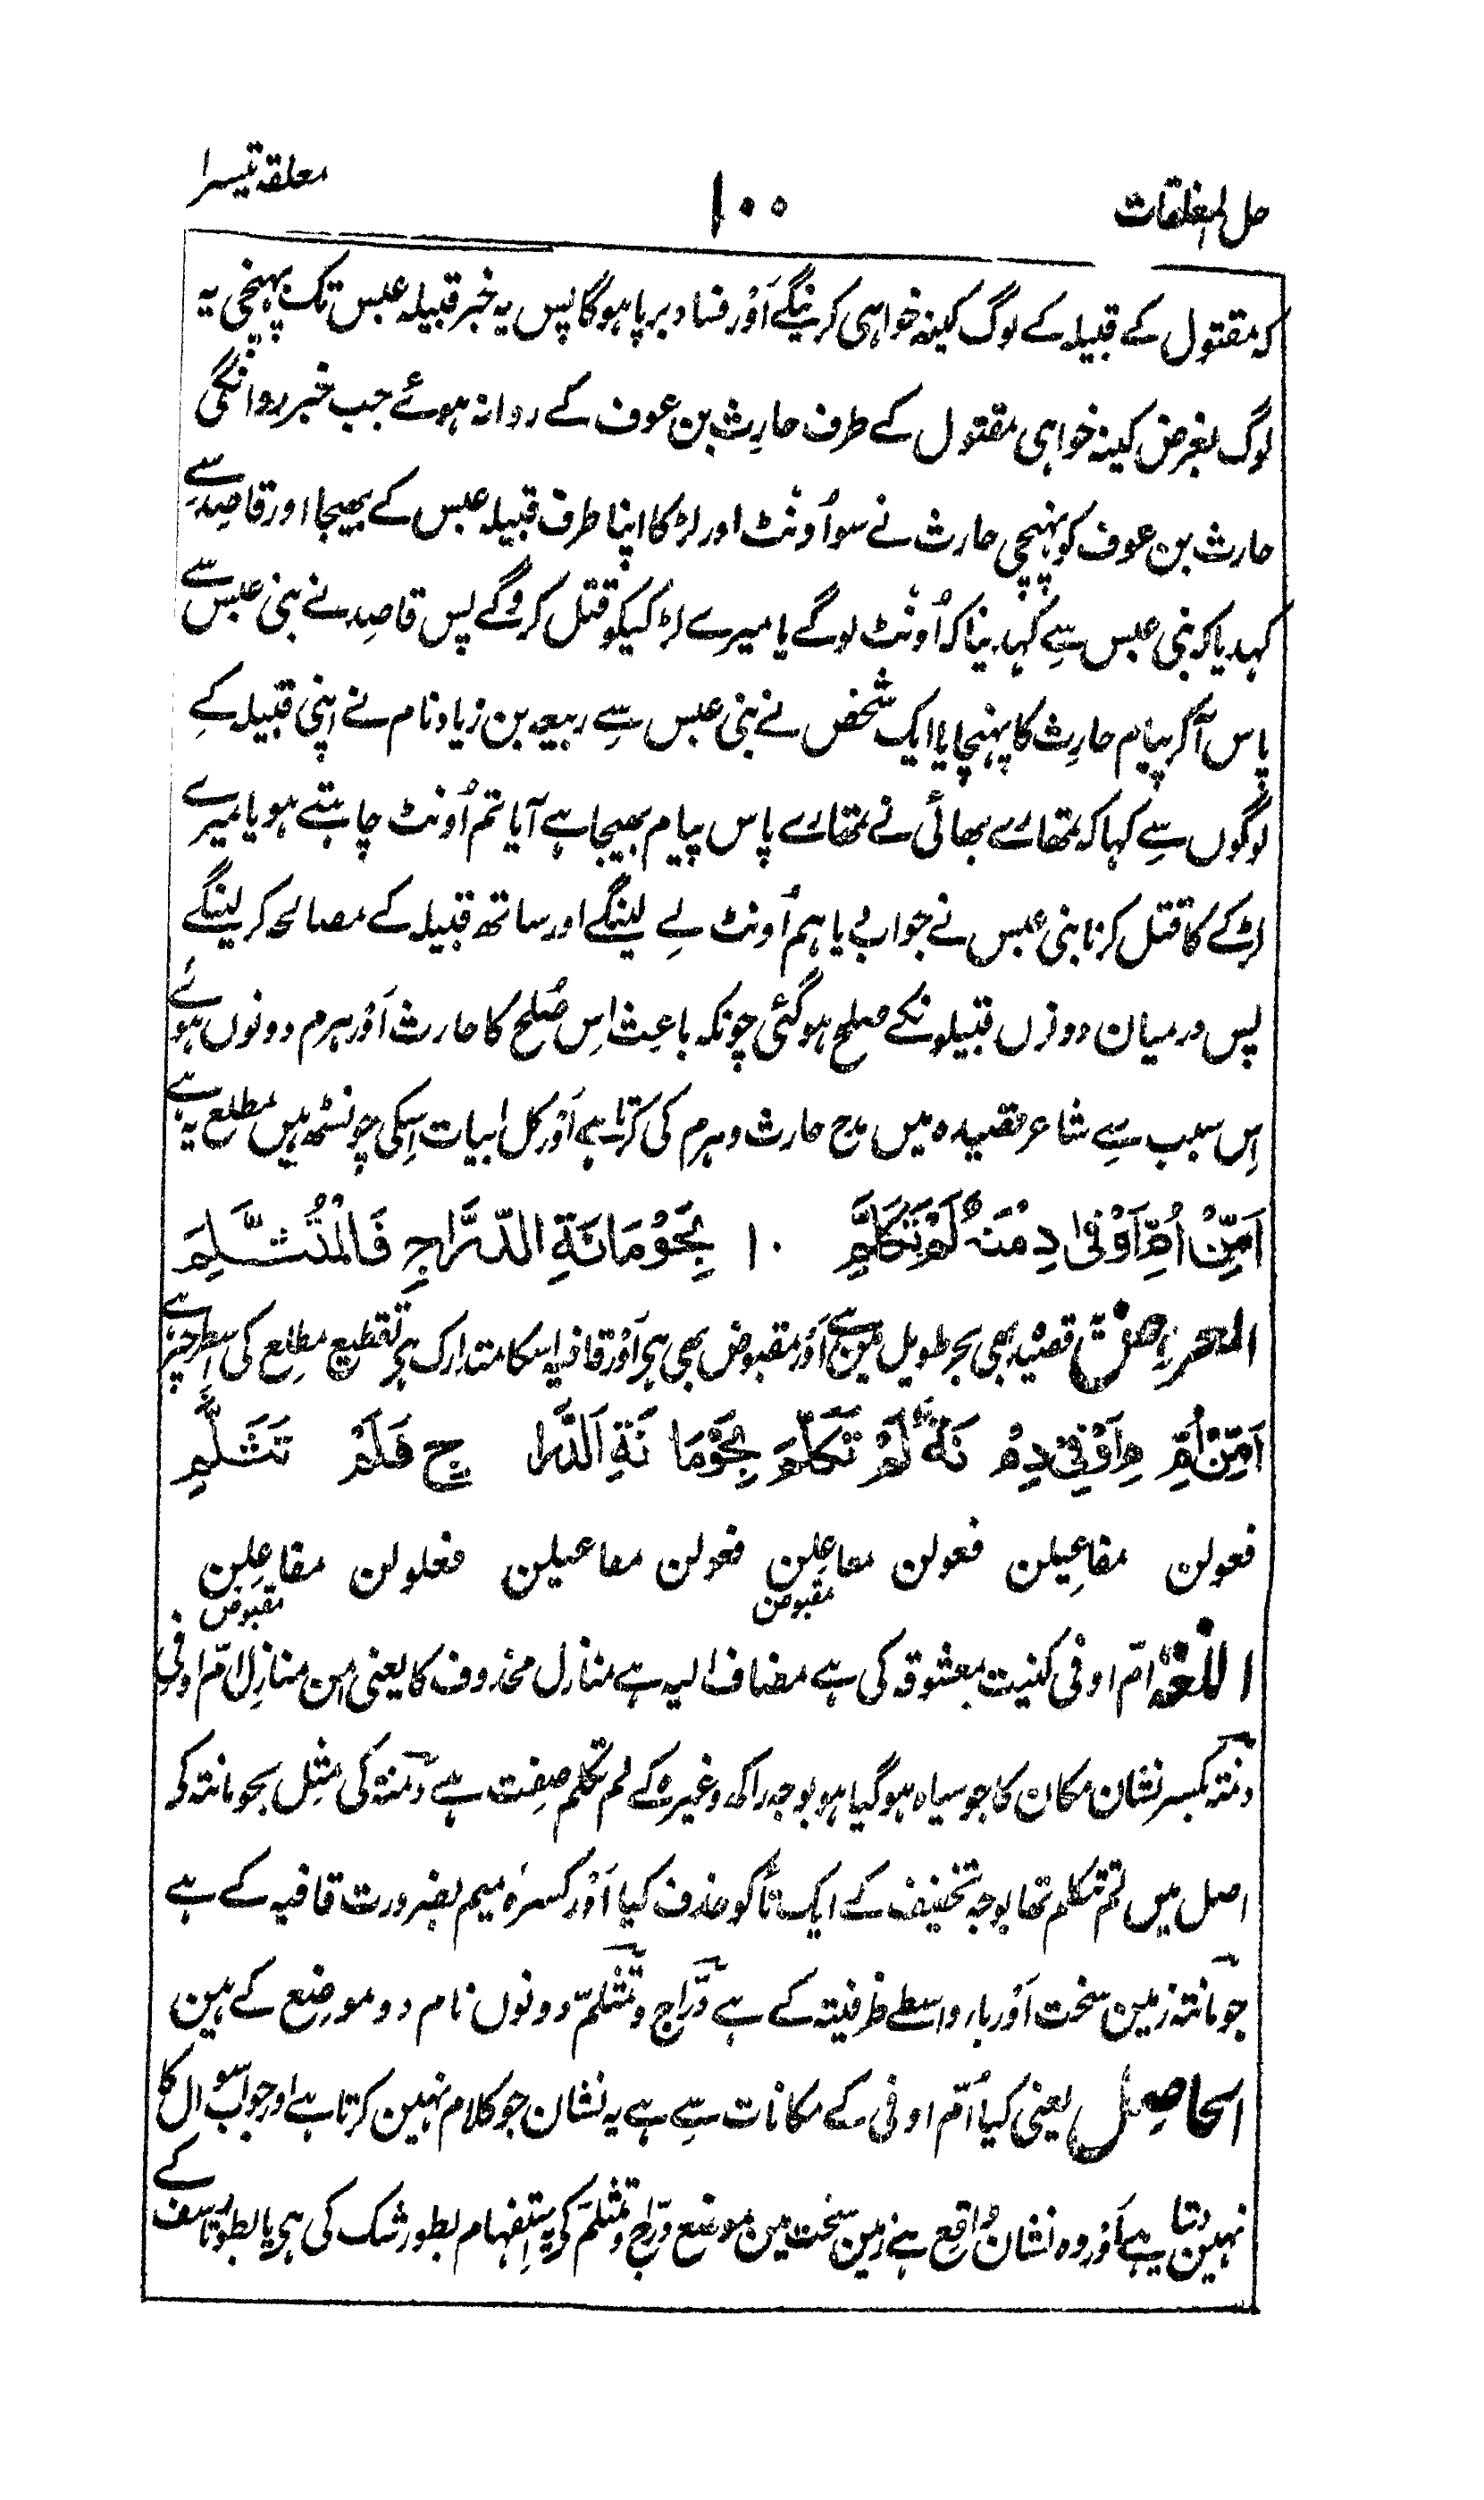 حل المغلقات ۱۰۰ معلقہ تیسرا
کہ مقتول کے قبیلہ کے لوگ کینہ خواہی کرینگے اَوْر فساد برپا ہوگا پس یہ خبر قبیلہ عبس تک پہنچی یہ
لوگ بغرض کینہ خواہی مقتول کے طرف حارِث بن عوف کے روانہ ہوئے جب خبر روانگی
حارث بن عوف کو پہنچی حارث نے سو اُونٹ اور لڑکا اپنا طرف قبیلہ عبس کے بھیجا اور قاصِد سے
کہدیا کہ بنی عبس سِے کہدینا کہ اُونٹ لوگے یا میرے لڑکیکو قتل کروگے پس قاصِد نے بنی عبس سے
پاس آکر پیام حارِث کا پہنچایا ایک شخص نے بنی عبس سِے ربیعہ بن زیاد نام نے اپنی قبیلہ کے
لوگوں سِے کہا کہ تمھارے بھائی نے تمھارے پاس پیام بھیجا ہے آیا تم اُونٹ چاہتے ہو یا میرے
لڑکے کا قتل کرنا بنی عبس نے جواب دیا ہم اُونٹ لے لینگے اور ساتھ قبیلہ کے مصالحہ کر لینگے
پس درمیان دونوں قبیلونکے صلح ہو گئی چونکہ باعِث اِس صُلح کا حارث اَوْر ہرم دونوں ہوئے
اِس سبب سِے شاعر قصیدہ میں مدح حارث و ہرم کی کرتا ہے اَوْر کل ابیات اِسکی چونسٹھ ہیں مطلع یہ ہے
اَمِنْ اُمِّ اَوْفٰی دِمْنَۃٌ لَمْ تَکَلَّمِ ۱۰ بِحَوْمَانَۃِ الدَّرَّاجِ فَالْمُتَثَلَّمِ
العروض قصیدہ بھی بحر طویل میں ہے اَوْر مقبوض بھی ہی اَوْر قافیہ اسکا متدارک ہی تقطیع مطلع کی اسطرحپر ہے
اَمِنْ اُمِّ مِ اَوْفٰی دِمْ نَۃٌ لَمْ تَکَلَّمِ بِحَوْمَا نَۃِ الدَّرَّا جِ فَلَمْ تَثَلَّمِ
فعولن مفاعِیلن فعولن معاعِلن فعولن معاعیلن فعلولن مفاعِلِن
مقبوض مقبوض
اللغۃ امّ اوفی کنیت معشوقہ کی ہے مضاف الیہ ہے منازل محذوف کا یعنی مِن منازِل امّ اوفی
دمنۃ بکسر نشان مکان کا جو سیاہ ہو گیا ہو بوجہ راکھ وغیرہ کے لم تکلم صِفت ہے دمنۃ کی مِثل بحومانۃ کی
اصل میں لم تتکلم تھا بوجہ تخفیف کے ایک تا کو حذف کیا اَوْر کسرۂ میم بضرورت قافیہ کے ہے
حومانۃ زمین سخت اَوْر باء واسطے ظرفیۃ کے ہے درّاج و تثلّم دونوں نام دو موضِع کے ہین
الحاصِل یعنی کیا اُمّ اوفی کے مکانات سِے ہے یہ نشان جو کلام نہین کرتا ہے اور جواب سوال کا
نہین دیتا ہے اَوْر وہ نشان واقِع ہے زمین سخت مین موضع درّاج و تثلّم کے یہ اِستفہام بطور شک کی ہی یا بطور تاسف کے